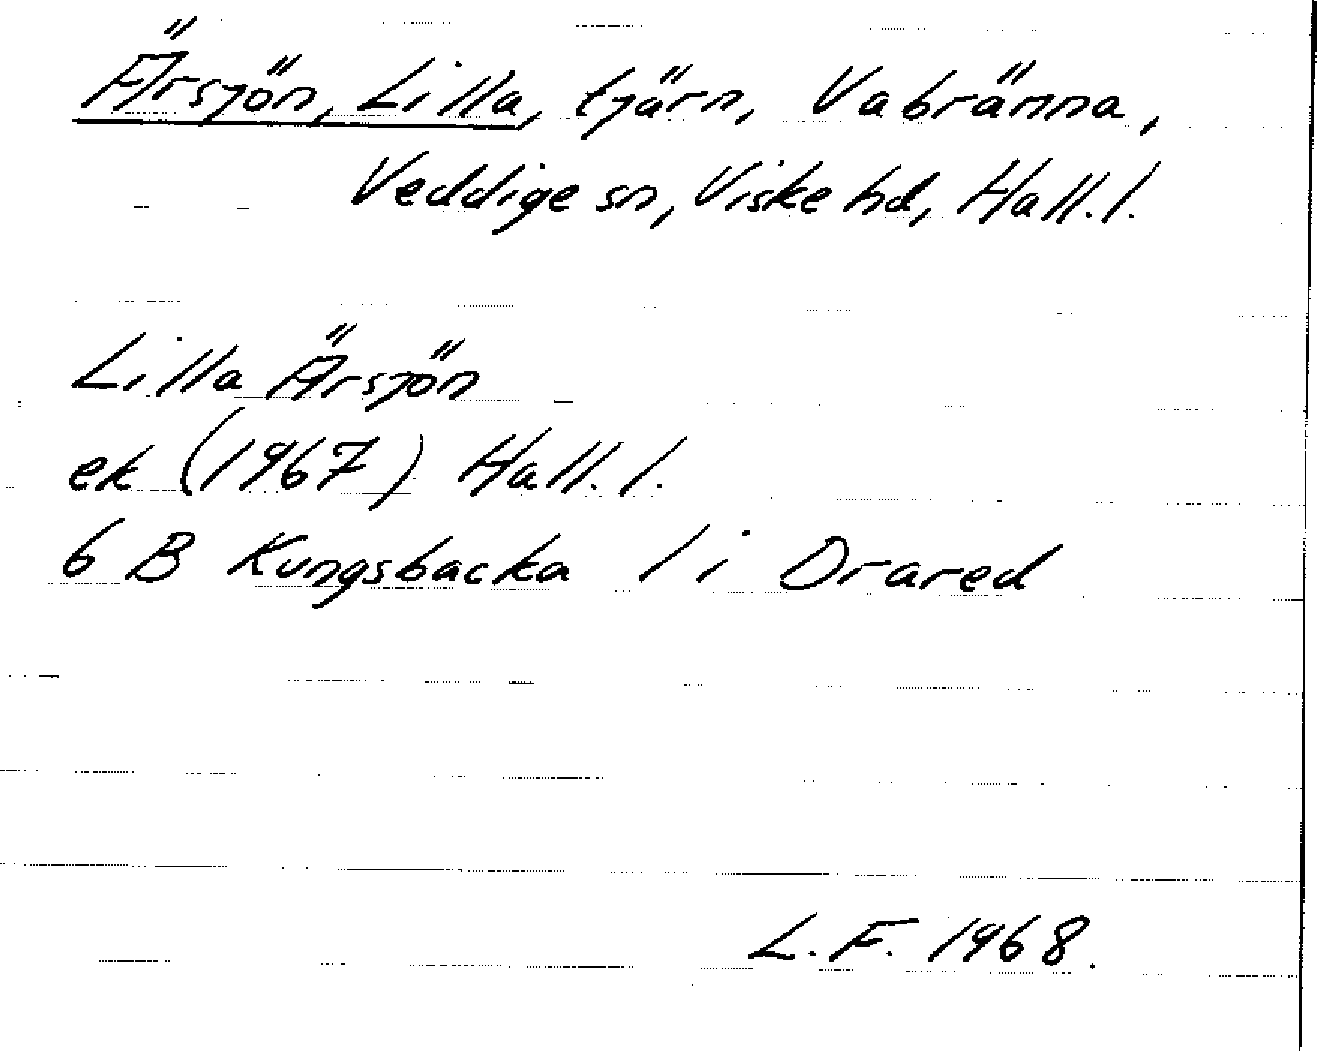 Ärsjön, Lilla, tjärn, Vabränna,
Veddige sn, Viske hd, Hall. l.
Lilla Ärsjön
ek (1967) Hall. l.
6 B Kungsbacka 1 i Drared
L. F. 1968.